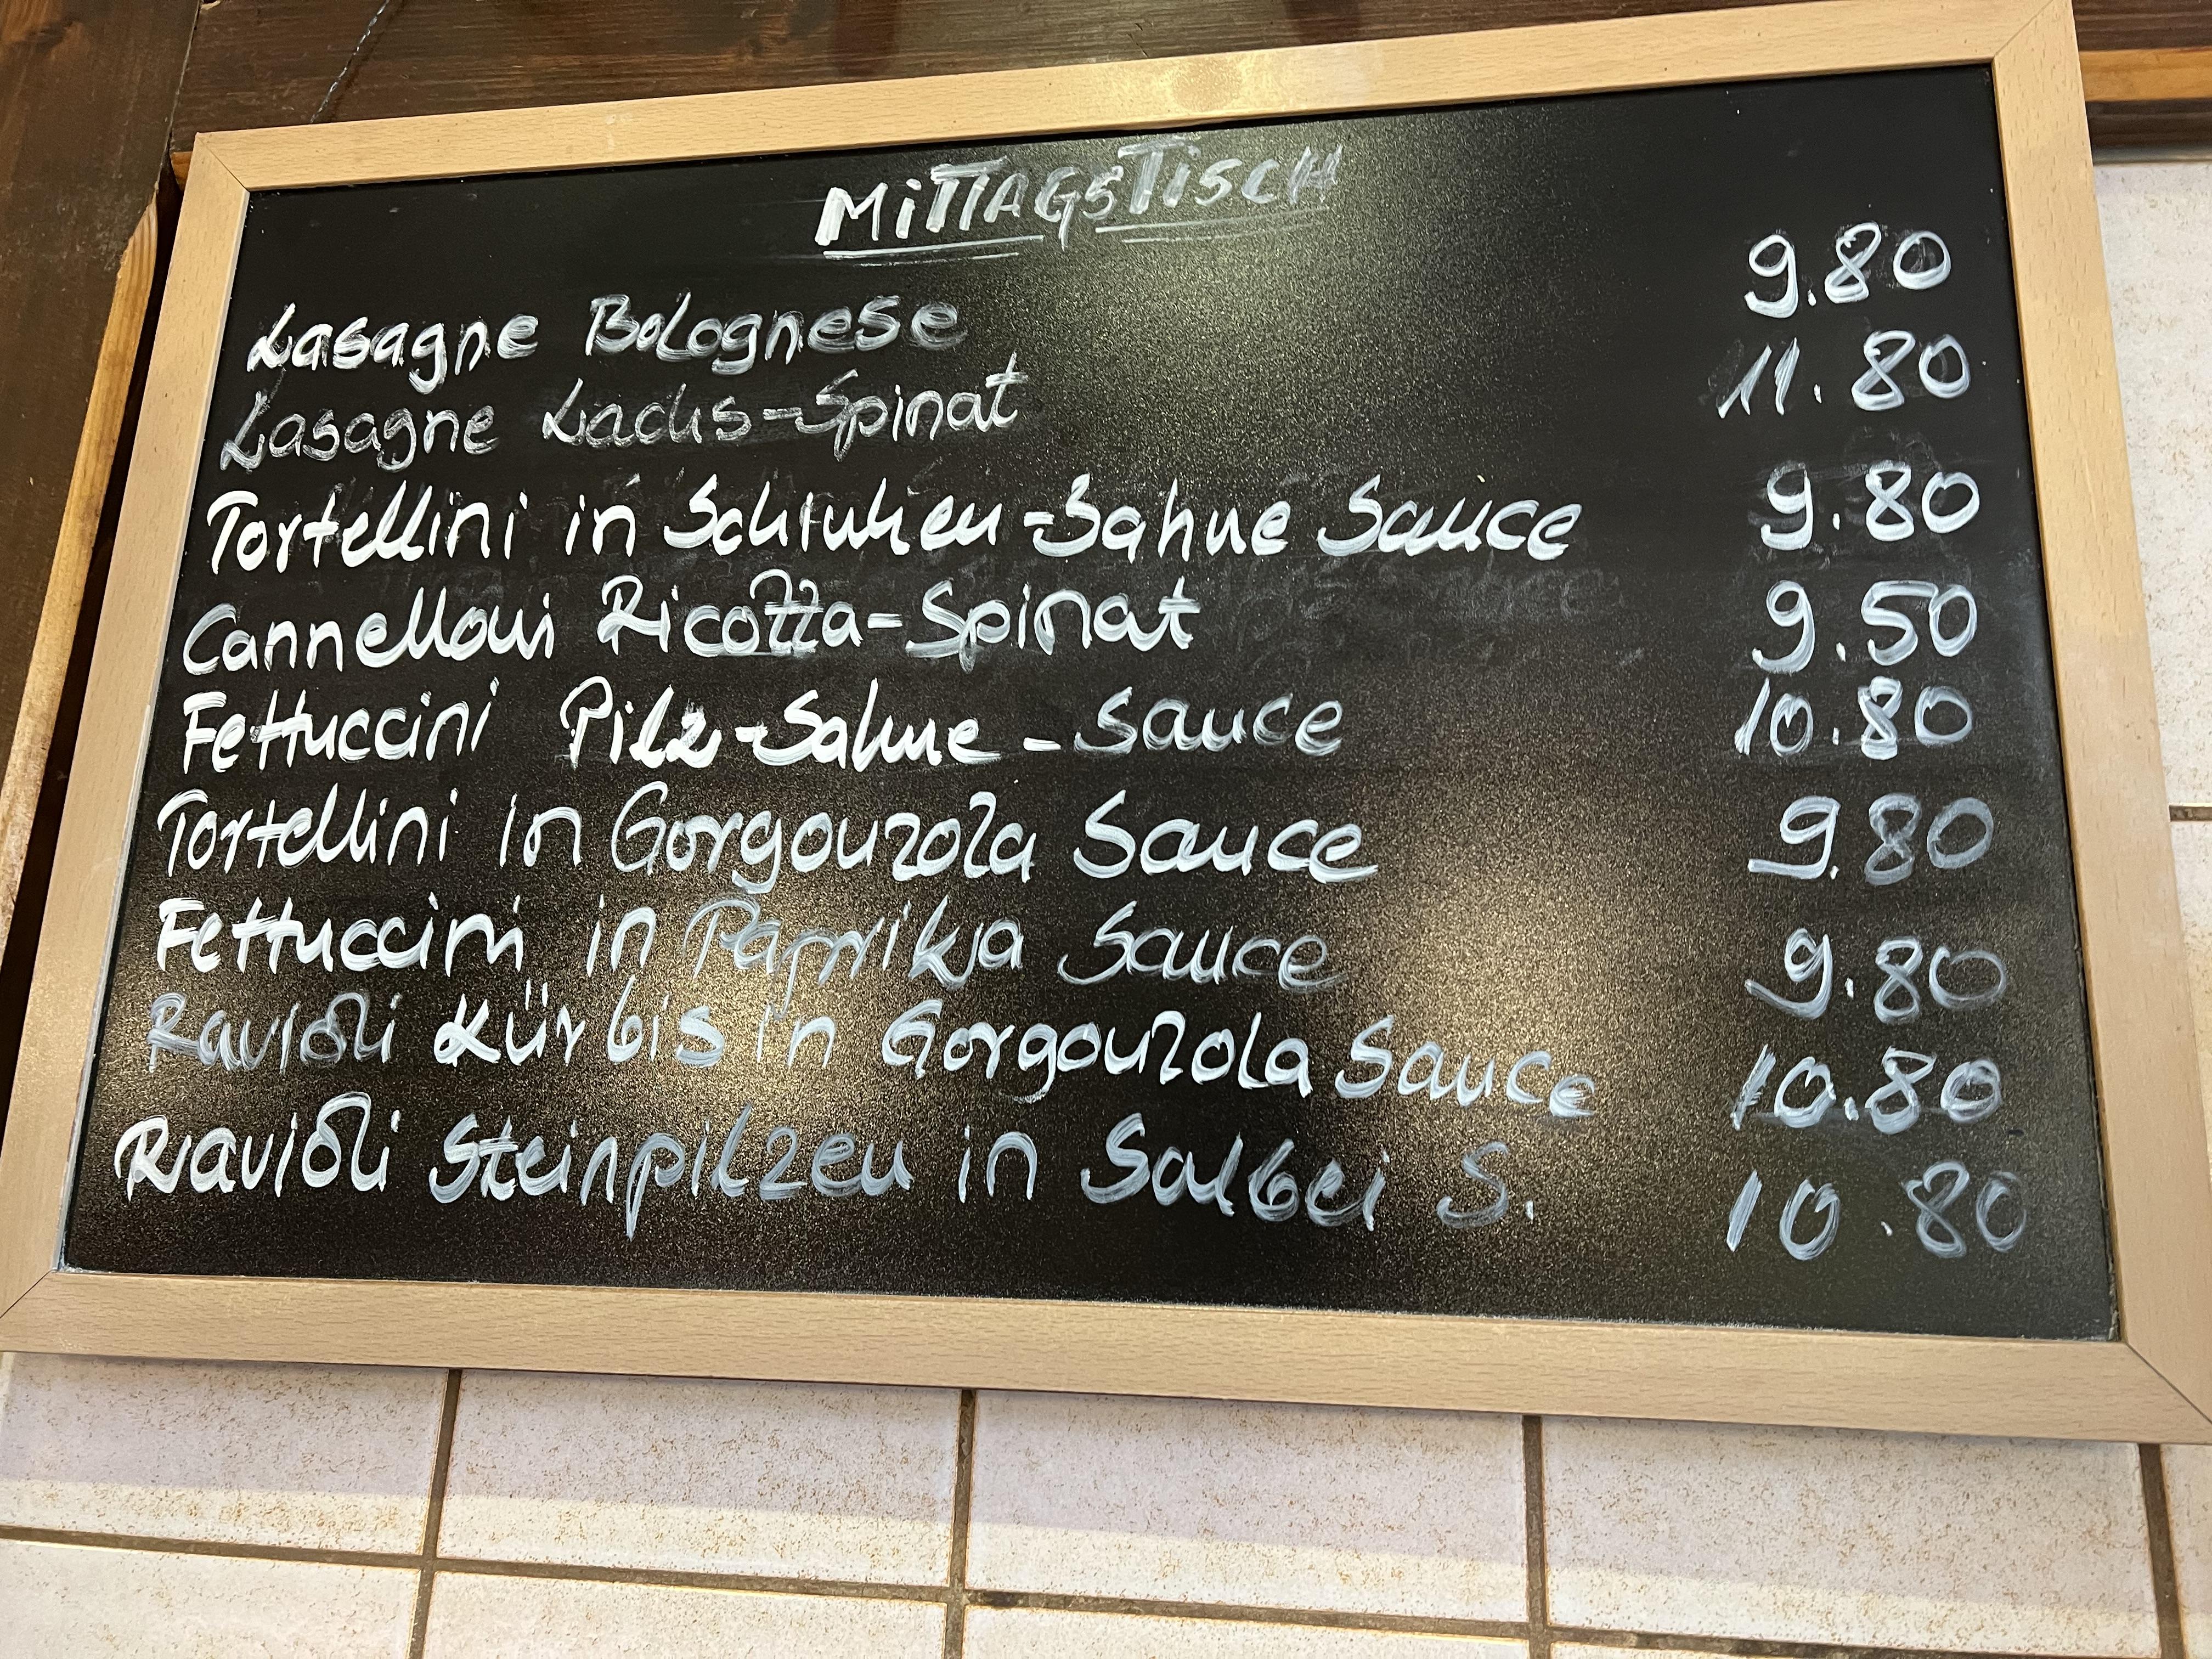 MiTTAGSTiSCH
Lasagne Bolognese 9.80
Lasagne Lachs-Spinat 11.80
Tortellini in Schinken-Sahne Sauce 9.80
Cannelloni Ricotta-Spinat 9.50
Fettuccini Pilz-Sahne-Sauce 10.80
Tortellini in Gorgonzola Sauce 9.80
Fettuccini in Paprika Sauce 9.80
Ravioli Kürbis in Gorgonzola Sauce 10.80
Ravioli Steinpilzen in Salbei S. 10.80